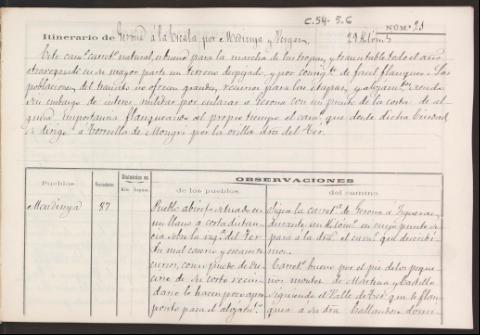 C.54- 5.6
NÚM.º 21
Itinerario de Gerona á la Escala por Medinyá y Vergés
29 Kilóm.s
Este cam.º carret.º natural, es bueno para la marcha de las tropas, y transitable todo el año
atravesando en su mayor parte un terreno despejado, y por consig.te de facil flanqueo. Las
poblaciones del transito no ofrecen grandes recursos para las etapas, y alojam.tos siendo
sin embargo de interes militar por enlazar a Gerona con un punto de la costa de al-
guna importancia flanqueando al propio tiempo el cam.º que desde dicha Ciudad
se dirige a Torroella de Mongri por la orilla dra del Ter.
OBSERVACIONES
Pueblos
Vecindario
Distancias en
de los pueblos.
del camino.
Medinyá
87
Pueblo abierto situado en
un llano a corta distan-
cia sobre la izq.ª del Ter
su mal caserio y escasos re-
cursos, como asi mismo lo
de su corto vecin-
dario lo hacen poco apro-
pósito para el alojam.to
Sigue la carret.ª de Gerona a Figueras
durante un Kilóm.º en cuyo punto se-
para á la dra. el cam.º que describi-
mos.
Carret.º bueno por el pie de los peque-
ños montes de
siguiendo el Valle del Ter que le flan-
quea a su dra hallandose domi-